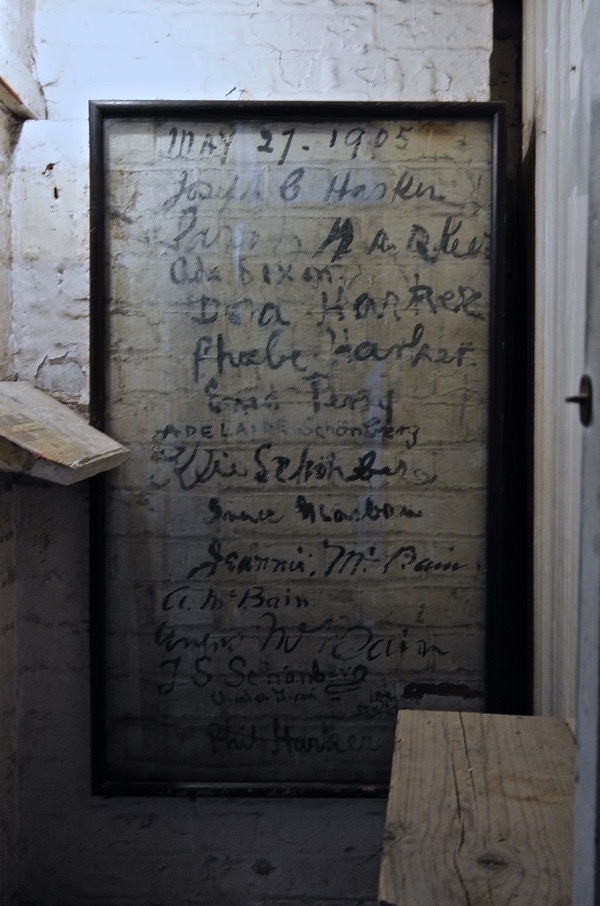 MAY 27. 1905
Joseph C Harker
Harker
Ada Dixon.
Dora Harker
Phoebe Harker.
Perry
ADELAIDE Schönberg
Schönberg
Jeannie. Mc Bain
A. McBain
Mc Bain
J S Schönberg
Phil Harker